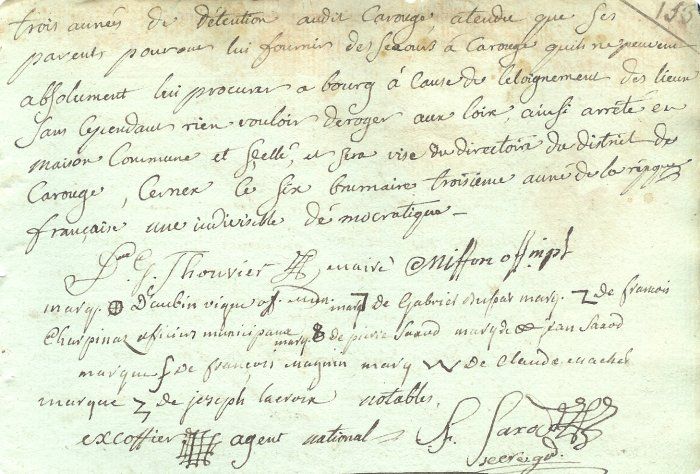 155
trois années de détention audit Carouge, atendu que ses
parents pourons lui fournir des secours à Carouge quils ne peuvent
absolument lui procurer a bourg à Cause de leloignement des lieux
sans cependant rien vouloir déroger aux loix, ainsi arrêté en
maison Commune et scellé, et sera vise du directoire du district de
Carouge, Cernex le six brumaire troisieme année de la répque
française une indivisible démocratique
G. Thouvier maire Miffon off mpl
marq. D'aubin vique of. mun. marq. de Gabriel duspas marq. de francois
Charpinaz oficiers municipaux marq. de pierre Sarod marq de jean Sarod
marque de françois magnin marq de Claude
marque de joseph lacroix notables.
excoffier agent national Sarod
secrég.